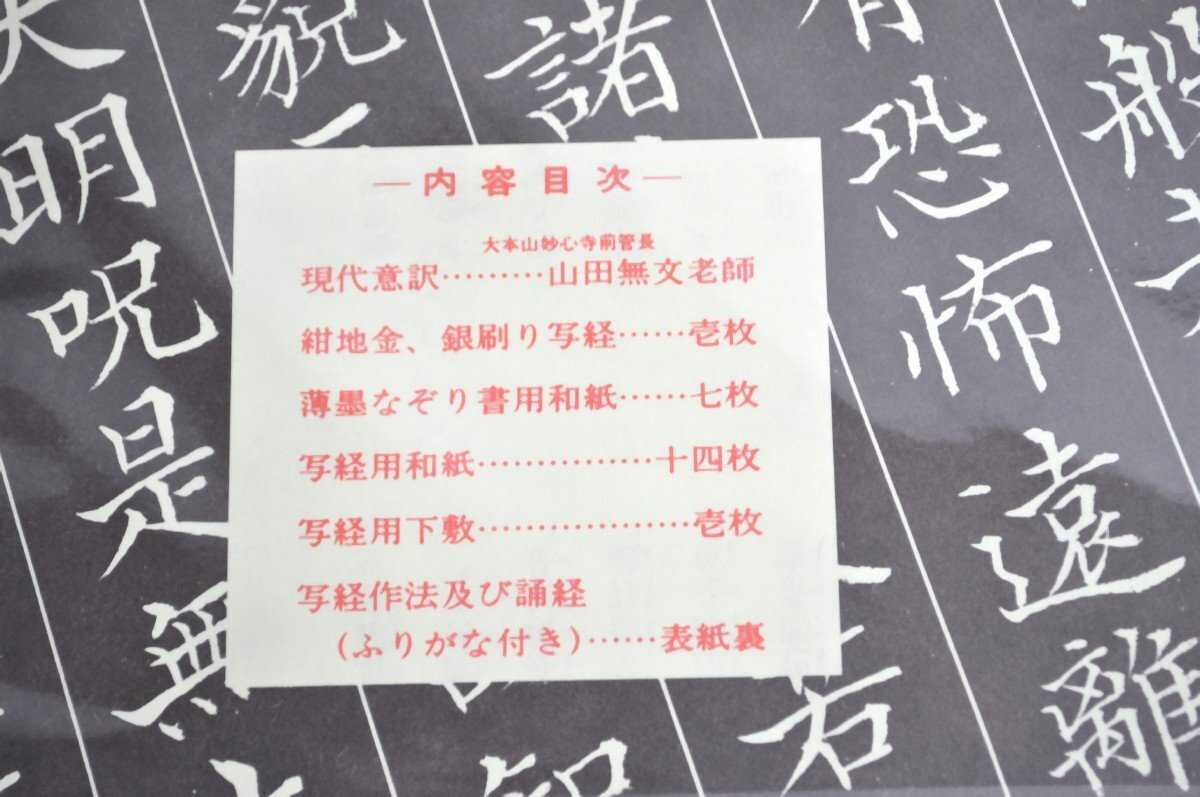 有
恐
怖
遠
離
般
若
諸
貌
大
明
呪
是
無
上
―内容目次―
大本山妙心寺前管長
現代意訳………山田無文老師
紺地金、銀刷り写経……壱枚
薄墨なぞり書用和紙……七枚
写経用和紙……………十四枚
写経用下敷………………壱枚
写経作法及び誦経
(ふりがな付き)……表紙裏